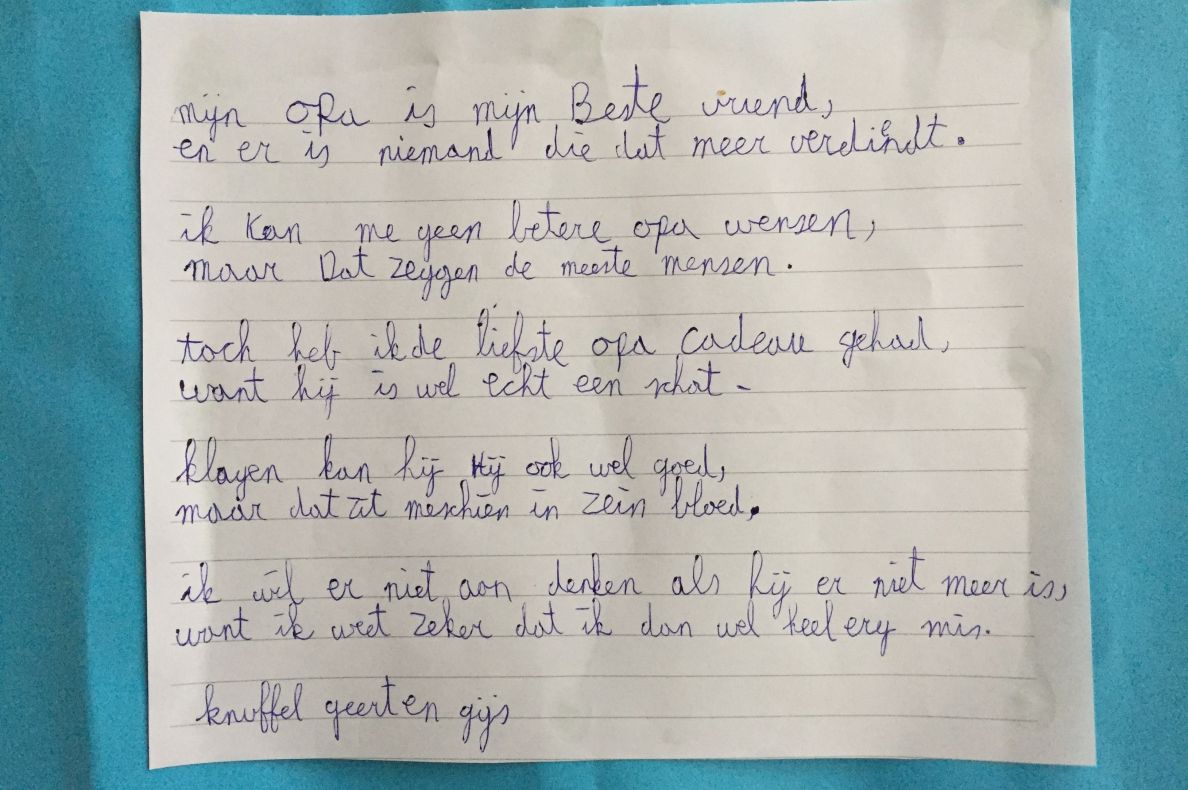 mijn opa is mijn Beste vriend,
en er is niemand die dat meer verdiendt.
ik kan me geen betere opa wensen,
maar Dat zeggen de meeste mensen.
toch heb ik de liefste opa cadeau gehad,
want hij is wel echt een schat -
klagen kan hij Hij ook wel goed,
maar dat zit meschien in zein bloed.
ik wil er niet aan denken als hij er niet meer is,
want ik weet zeker dat ik dan wel heel erg mis.
knuffel geert en gijs